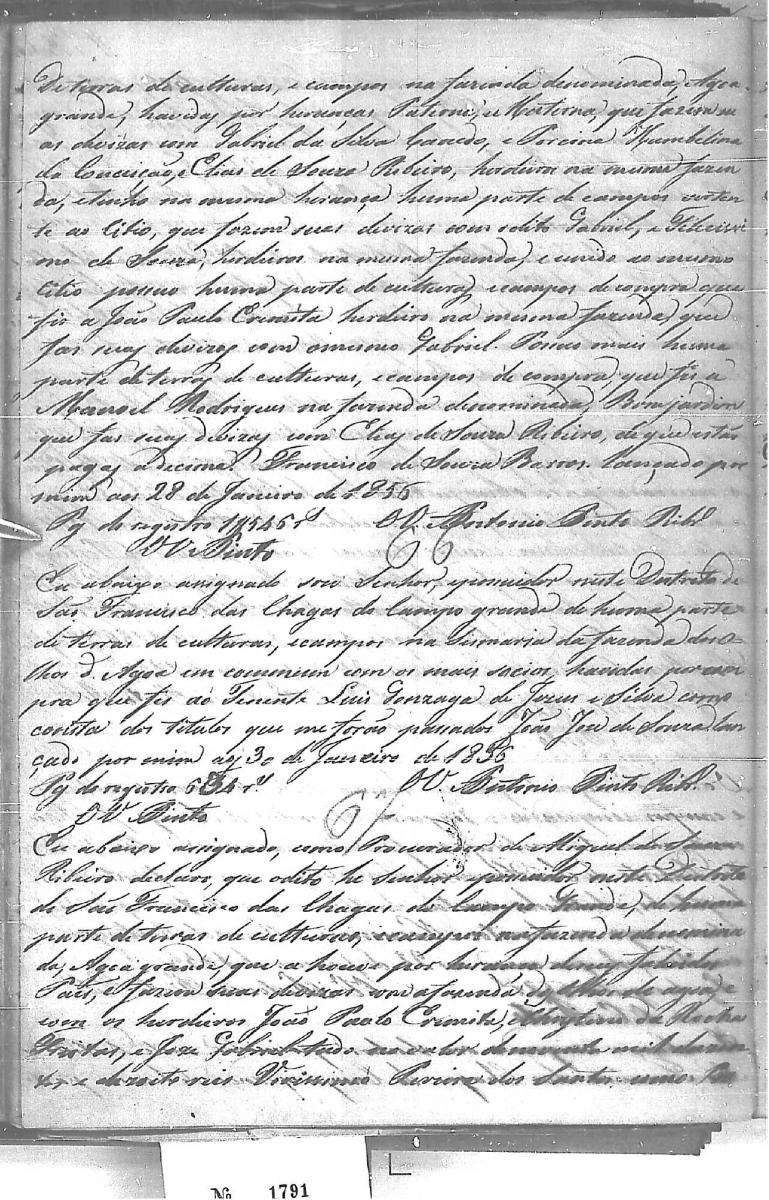 De terras de culturas, e campos na fazenda denominada, Agoa
grande, havidas por heranças Paterna, e Materna, que fazem
as divizas com Gabriel da Silva, e Porcina Humbelina
da Conceição, e Elias de Souza Ribeiro, herdeiro na mesma fazen
da, e tenho na mesma herança huma parte de campos verten
te ao Citio, que fazem suas divizas com o dito Gabriel, e Felicissi
mo de Souza, herdeiros na mesma fazenda, e unido ao mesmo
Citio possuo huma parte de culturas, e campos de compra que
fis a João Paulo Eremita herdeiro na mesma fazenda, que
fas suas divizas com o mesmo Gabriel. Possuo mais huma
parte de terras de culturas, e campos de compra, que fis a
Manoel Rodrigues na fazenda denominada, Bom jardim
que fas suas divizas com Elias de Souza Ribeiro, de que estão
pagas a decima. Francisco de Souza Barros. Lançado por
mim aos 28 de Janeiro de 1856
Pg de registro rs O V. Antonio Pinto Ribro
O V. Pinto
Eu abaixo assignado sou Senhor, e possuidor neste Destrito de
São Francisco das Chagas do Campo grande de huma parte
de terras de culturas, e campos na Sismaria da fazenda dos O
lhos d. Agoa em commum com os mais socios havidas por com
pra que fis ao Tenente Luis Gonzaga de Jezus e Silva como
consta dos titulos que me forão passados João Joze de Souza Lan
çado por mim aos 30 de Janeiro de 1856
Pg de registro 634 rs O V. Antonio Pinto Ribro
O V Pinto
Eu abaixo assignado, como Procurador de Miguel de Souza
Ribeiro declaro, que o dito he Senhor e possuidor neste Destrito
de São Francisco das Chagas do Campo Grande, de huma
parte de terras de culturas, e campos na fazenda denomina
da, Agoa grande, que a houve por herança de seus falecidos
Paes, e fazem suas divizas com a fazenda dos Olhos de agoa, e
com os herdeiros João Paulo Eremita, da Rocha
Freitas, e Joze Gabriel tudo no valor de mil
e dezoito reis Vicissimo Pereira dos Santos como
No 1791